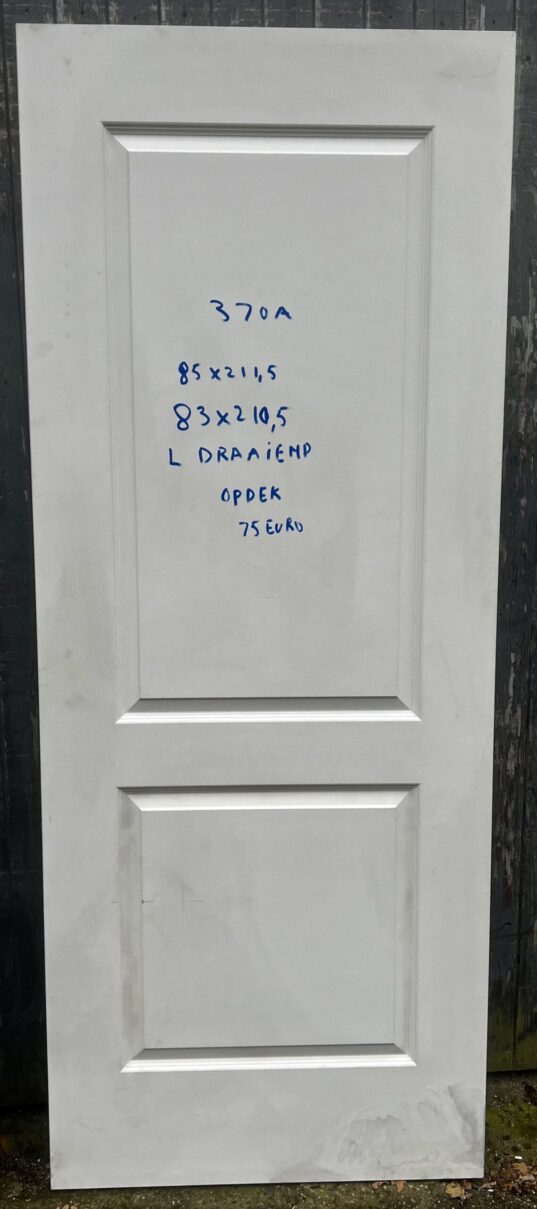 370A
85x211,5
83x210,5
L DRAAiEND
OPDEK
75 EURO